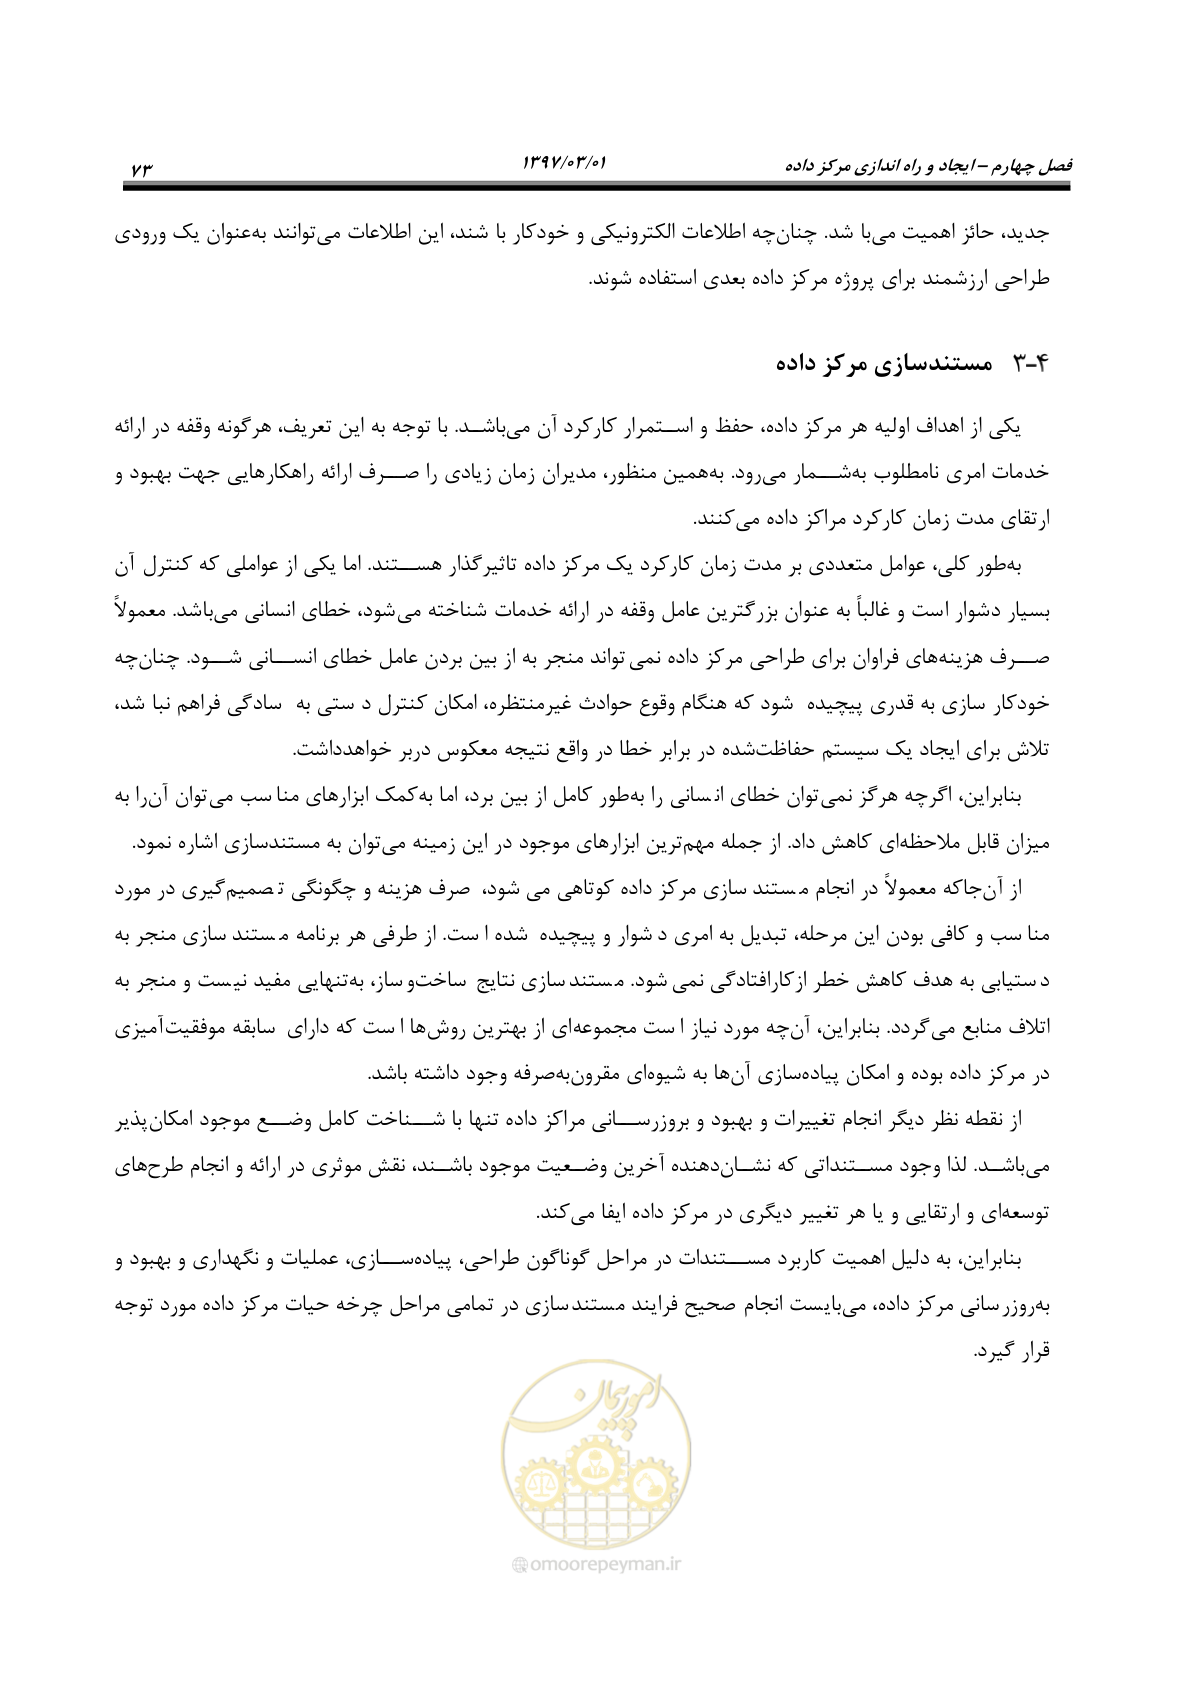 فصل چهارم – ایجاد و راه اندازی مرکز داده ۱۳۹۷/۰۳/۰۱ ۷۳
جدید، حائز اهمیت می‌با شد. چنان‌چه اطلاعات الکترونیکی و خودکار با شند، این اطلاعات می‌توانند به‌عنوان یک ورودی
طراحی ارزشمند برای پروژه مرکز داده بعدی استفاده شوند.
۴-۳ مستندسازی مرکز داده
یکی از اهداف اولیه هر مرکز داده، حفظ و استمرار کارکرد آن می‌باشد. با توجه به این تعریف، هرگونه وقفه در ارائه
خدمات امری نامطلوب به‌شمار می‌رود. به‌همین منظور، مدیران زمان زیادی را صرف ارائه راهکارهایی جهت بهبود و
ارتقای مدت زمان کارکرد مراکز داده می‌کنند.
به‌طور کلی، عوامل متعددی بر مدت زمان کارکرد یک مرکز داده تاثیرگذار هستند. اما یکی از عواملی که کنترل آن
بسیار دشوار است و غالباً به عنوان بزرگترین عامل وقفه در ارائه خدمات شناخته می‌شود، خطای انسانی می‌باشد. معمولاً
صرف هزینه‌های فراوان برای طراحی مرکز داده نمی‌تواند منجر به از بین بردن عامل خطای انسانی شود. چنان‌چه
خودکار سازی به قدری پیچیده شود که هنگام وقوع حوادث غیرمنتظره، امکان کنترل د ستی به سادگی فراهم نبا شد،
تلاش برای ایجاد یک سیستم حفاظت‌شده در برابر خطا در واقع نتیجه معکوس دربر خواهدداشت.
بنابراین، اگرچه هرگز نمی‌توان خطای انسانی را به‌طور کامل از بین برد، اما به‌کمک ابزارهای منا سب می‌توان آن‌را به
میزان قابل ملاحظه‌ای کاهش داد. از جمله مهم‌ترین ابزارهای موجود در این زمینه می‌توان به مستندسازی اشاره نمود.
از آن‌جاکه معمولاً در انجام مستند سازی مرکز داده کوتاهی می شود، صرف هزینه و چگونگی تصمیم‌گیری در مورد
منا سب و کافی بودن این مرحله، تبدیل به امری د شوار و پیچیده شده ا ست. از طرفی هر برنامه مستند سازی منجر به
د ستیابی به هدف کاهش خطر ازکارافتادگی نمی شود. مستند سازی نتایج ساخت‌و ساز، به‌تنهایی مفید نیست و منجر به
اتلاف منابع می‌گردد. بنابراین، آن‌چه مورد نیاز ا ست مجموعه‌ای از بهترین روش‌ها ا ست که دارای سابقه موفقیت‌آمیزی
در مرکز داده بوده و امکان پیاده‌سازی آن‌ها به شیوه‌ای مقرون‌به‌صرفه وجود داشته باشد.
از نقطه نظر دیگر انجام تغییرات و بهبود و بروزرسانی مراکز داده تنها با شناخت کامل وضع موجود امکان‌پذیر
می‌باشد. لذا وجود مستنداتی که نشان‌دهنده آخرین وضعیت موجود باشند، نقش موثری در ارائه و انجام طرح‌های
توسعه‌ای و ارتقایی و یا هر تغییر دیگری در مرکز داده ایفا می‌کند.
بنابراین، به دلیل اهمیت کاربرد مستندات در مراحل گوناگون طراحی، پیاده‌سازی، عملیات و نگهداری و بهبود و
به‌روزر سانی مرکز داده، می‌بایست انجام صحیح فرایند مستند سازی در تمامی مراحل چرخه حیات مرکز داده مورد توجه
قرار گیرد.
امور پیمان
@omoorepeyman.ir